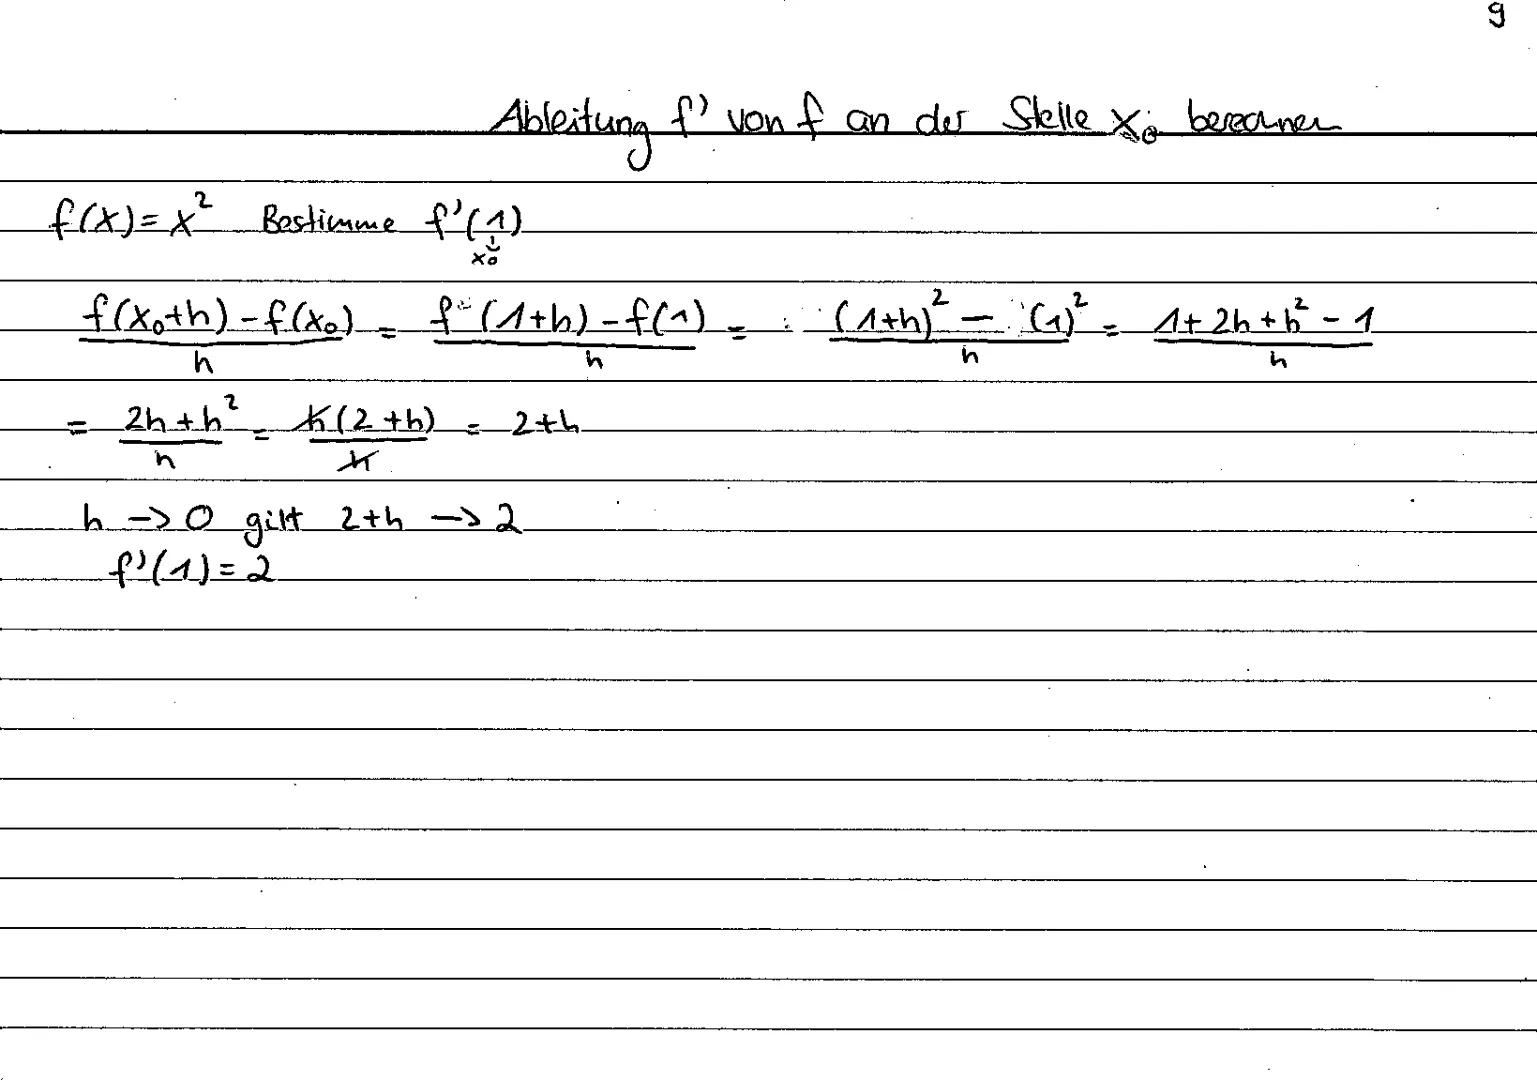 9
Ableitung f' von f an der Stelle x₀ berechnen
f(x) = x² Bestimme f'(1)
x₀
f(x₀+h) - f(x₀) / h = f(1+h) - f(1) / h = (1+h)² - (1)² / h = 1 + 2h + h² - 1 / h
= 2h + h² / h = h(2+h) / h = 2+h
h -> 0 gilt 2+h -> 2
f'(1) = 2